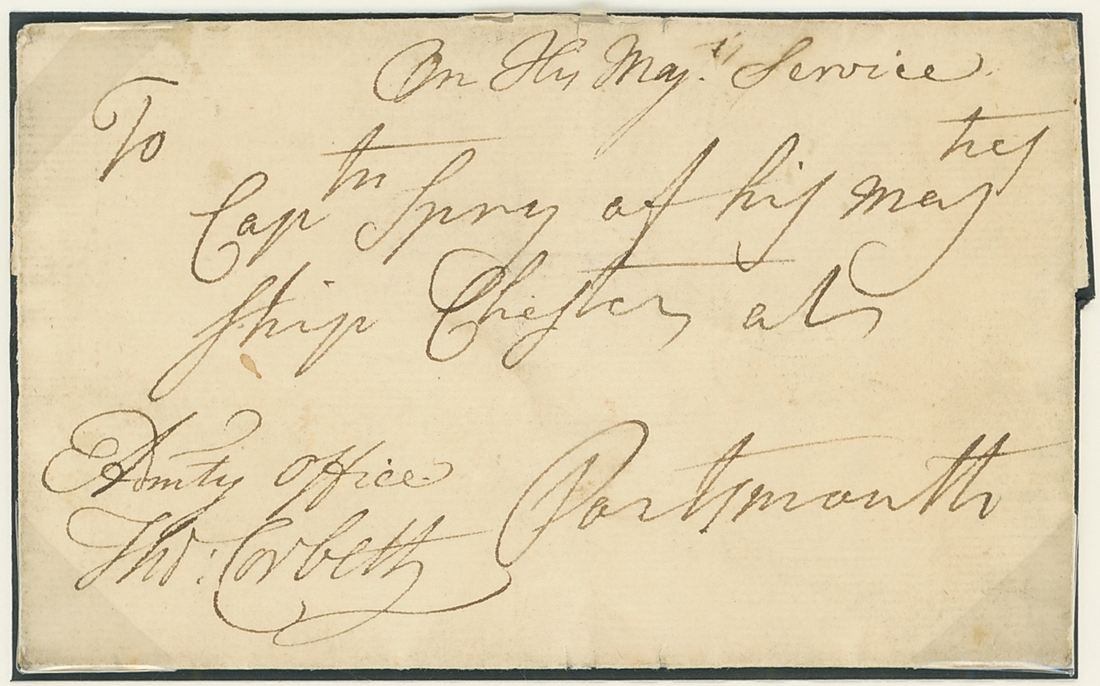 On His Maj.ty Service
To
Captn Spry of his Majties
ship Chester, at
Portsmouth
Admty Office
Tho: Corbett